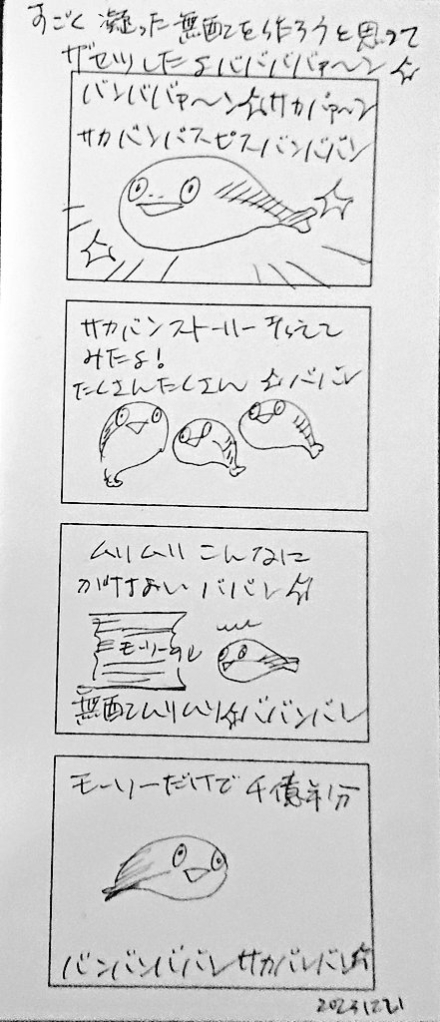 すごく凝った無配を作ろうと思って
ザセツしたよババババァ〜ン☆
バンババァ〜ン☆サカバァ〜ン
サカバンバスピスバンババン
サカバンストーリー考えて
みたよ!
たくさんたくさん ☆ババン
ムリムリこんなに
かけない ババン☆
モーリー
無配でムリムリ☆ババンバン
モーリーだけで千億年分
バンバンババンサカバンバン☆
2023.12.21